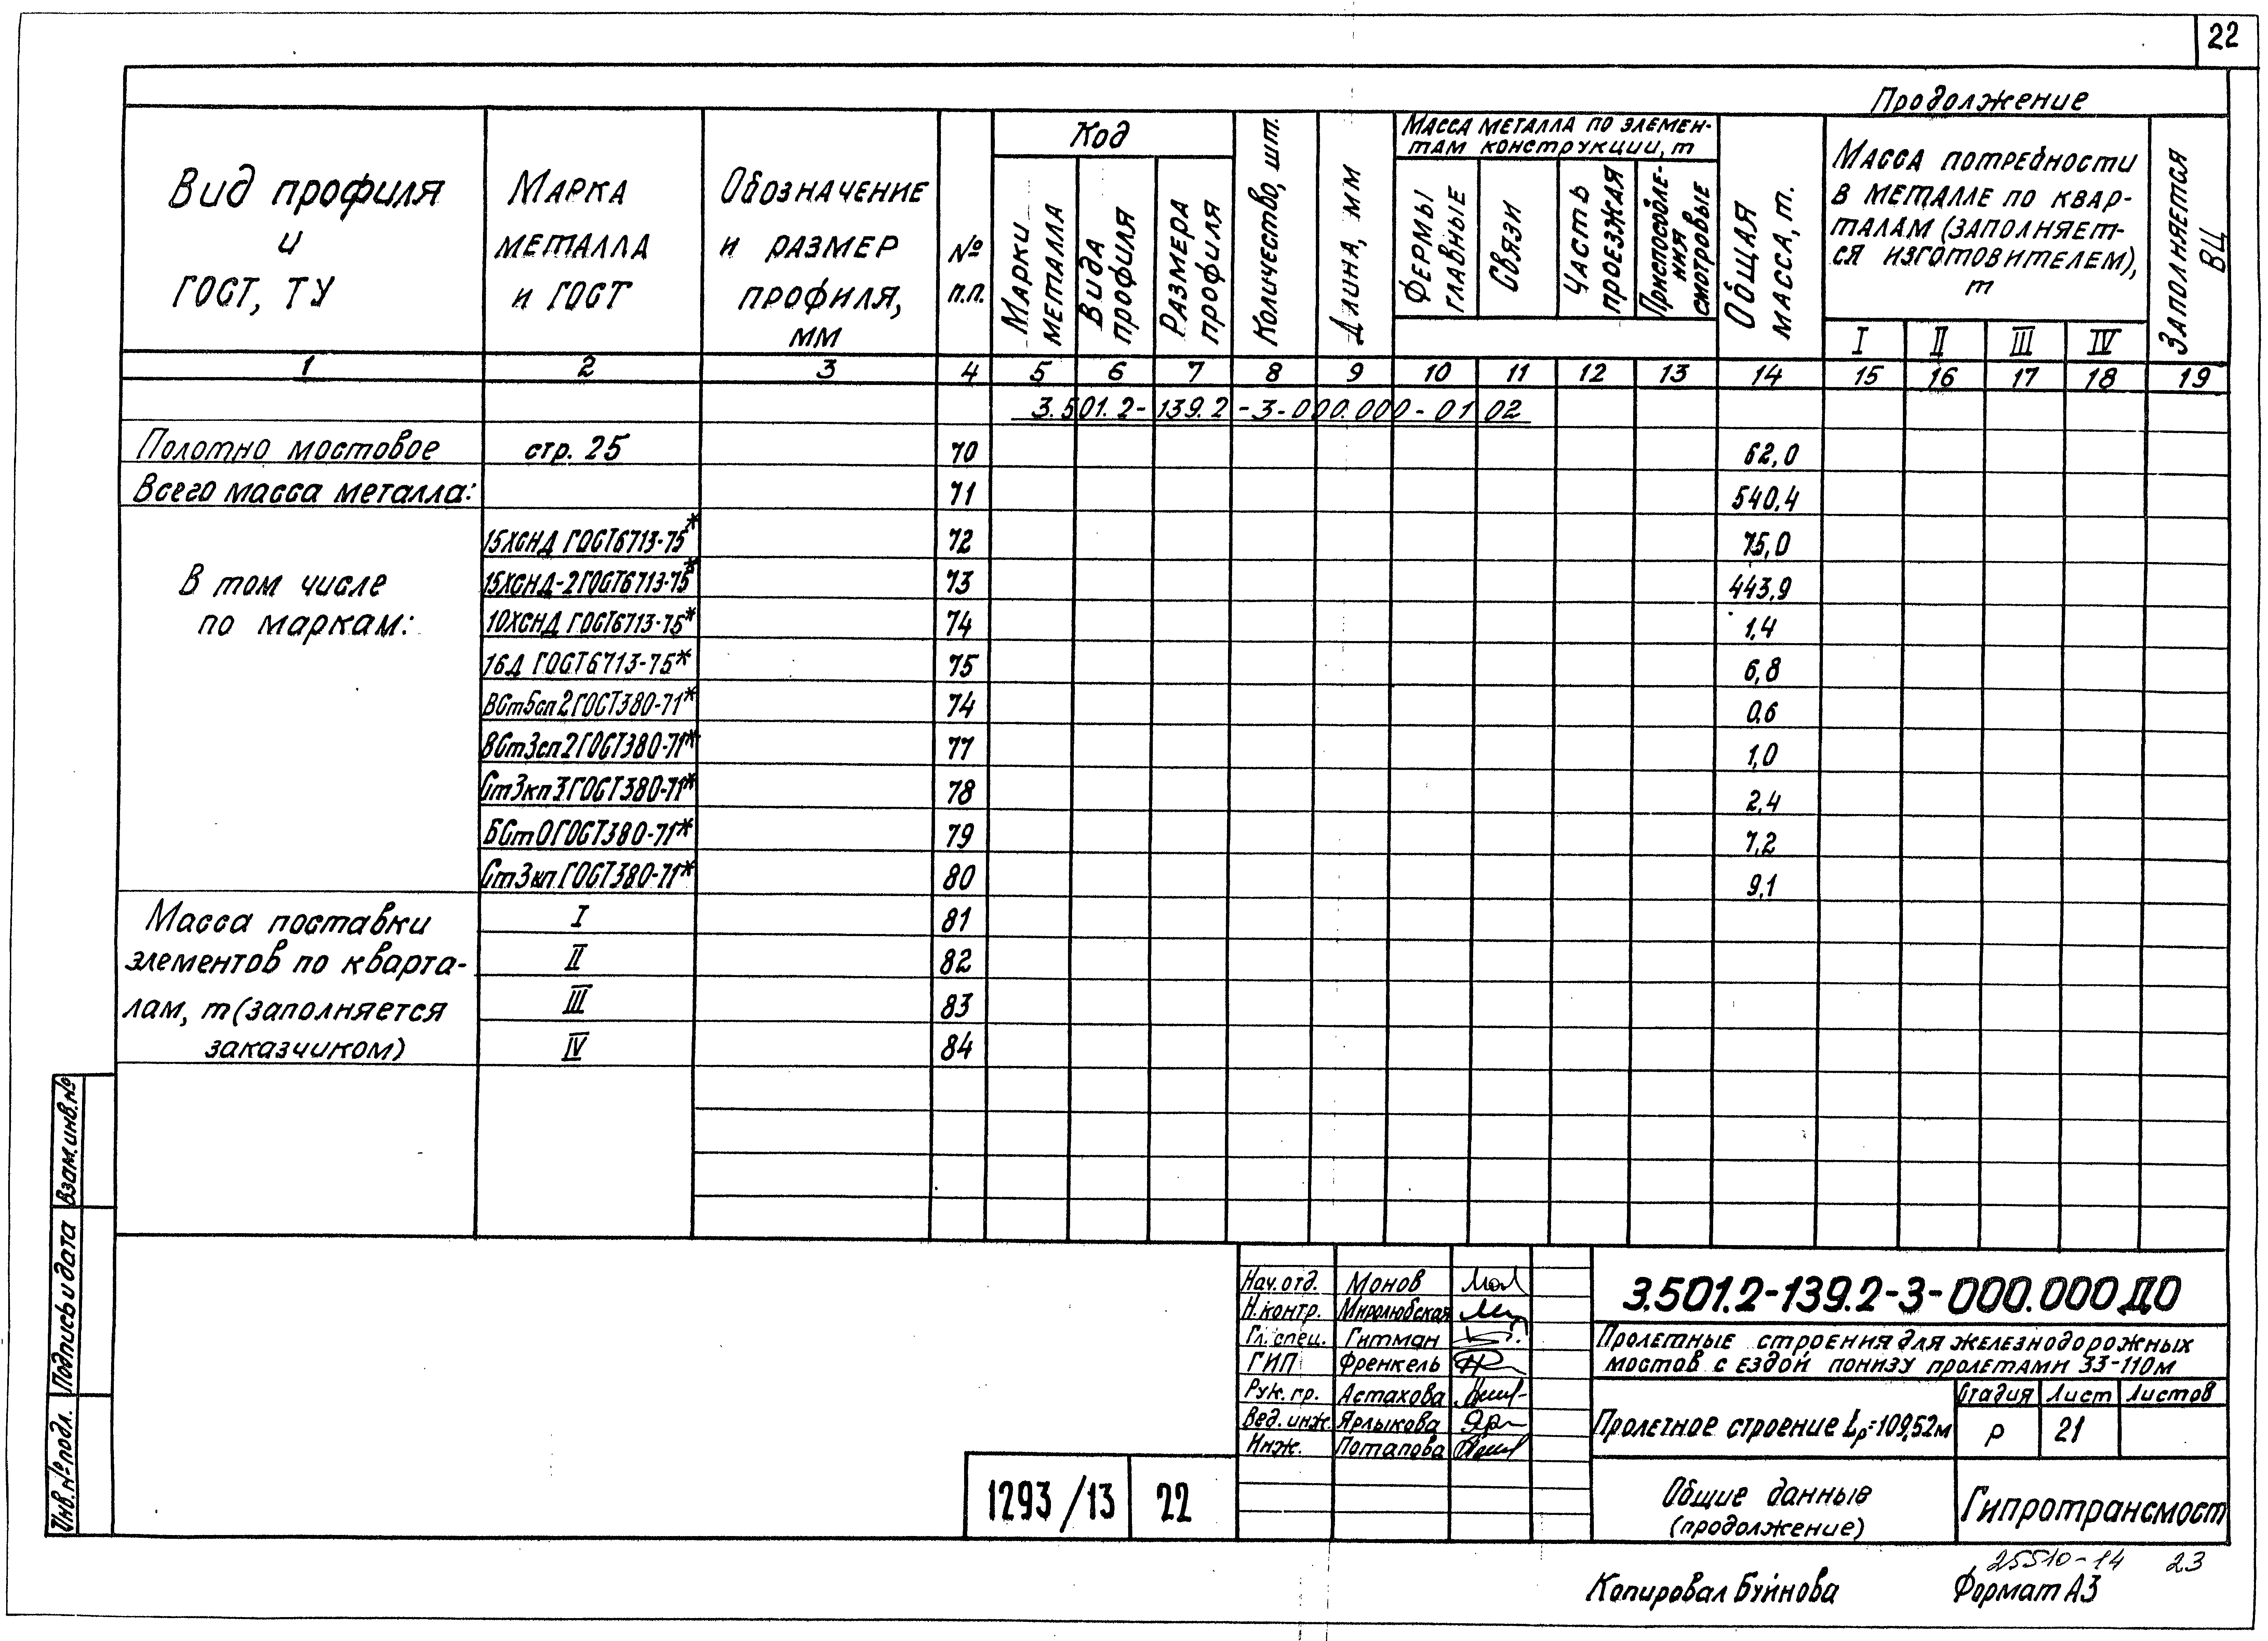 22
Продолжение
Вид профиля и ГОСТ, ТУ
Марка металла и ГОСТ
Обозначение и размер профиля, мм
№ п.п.
Код
Марки металла
Вида профиля
Размера профиля
Количество, шт.
Длина, мм
Масса металла по элемен-
там конструкции, т
Фермы главные
Связи
Часть проезжая
Приспособле-
ния смотровые
Общая масса, т.
Масса потребности
в металле по квар-
талам (заполняет-
ся изготовителем),
т
I II III IV
Заполняется ВЦ
1 2 3 4 5 6 7 8 9 10 11 12 13 14 15 16 17 18 19
3.501.2-139.2-3-000.000-01 02
Полотно мостовое стр. 25 70 62,0
Всего масса металла: 71 540,4
15ХСНД ГОСТ6713-75* 72 75,0
В том числе 15ХСНД-2ГОСТ6713-75* 73 443,9
по маркам: 10ХСНД ГОСТ6713-75* 74 1,4
16Д ГОСТ6713-75* 75 6,8
ВСт5сп2ГОСТ380-71* 74 0,6
ВСт3сп2ГОСТ380-71* 77 1,0
Ст3кп3ГОСТ380-71* 78 2,4
БСт0ГОСТ380-71* 79 7,2
Ст3кпГОСТ380-71* 80 9,1
Масса поставки I 81
элементов по кварта- II 82
лам, т (заполняется III 83
заказчиком) IV 84
Взам.инв.№
Подпись и дата
Инв.№подл.
Нач.отд. Монов
Н.контр. Миролюбская
Гл.спец. Гитман
ГИП Френкель
Рук.гр. Астахова
Вед.инж. Ярлыкова
Инж. Потапова
3.501.2-139.2-3-000.000 ДО
Пролетные строения для железнодорожных
мостов с ездой понизу пролетами 33-110м
Пролетное строение Lр=109,52м
Стадия Лист Листов
Р 21
Общие данные
(продолжение)
Гипротрансмост
1293/13 22
25510-14 23
Копировал Буйнова
Формат А3